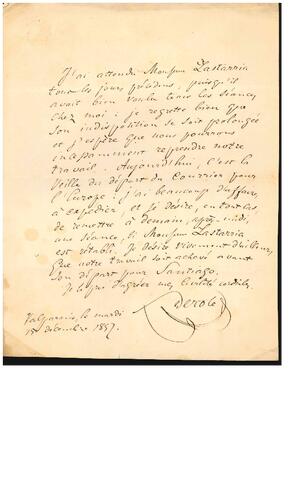 J'ai attendu Monsieur Lastarria
tous les jours précédens, puisqu'il
avait bien voulu tenir les séances
chez moi: je regrette bien que
son indisposition se soit prolongée
et j'espère que nous pourrons
incessamment reprendre notre
travail. Aujourd'hui, c'est la
veille du départ du Courrier pour
l'Europe: j'ai beaucoup d'affaires
à expédier, et je désire, en tout cas
de remettre à demain, après-midi,
une séance, si Monsieur Lastarria
est rétabli. Je désire vivement d'ailleurs,
que notre travail soit achevé avant
son départ pour Santiago.
Je le prie d'agréer mes civilités cordiales.
Valparaiso, le mardi
15 décembre 1857.